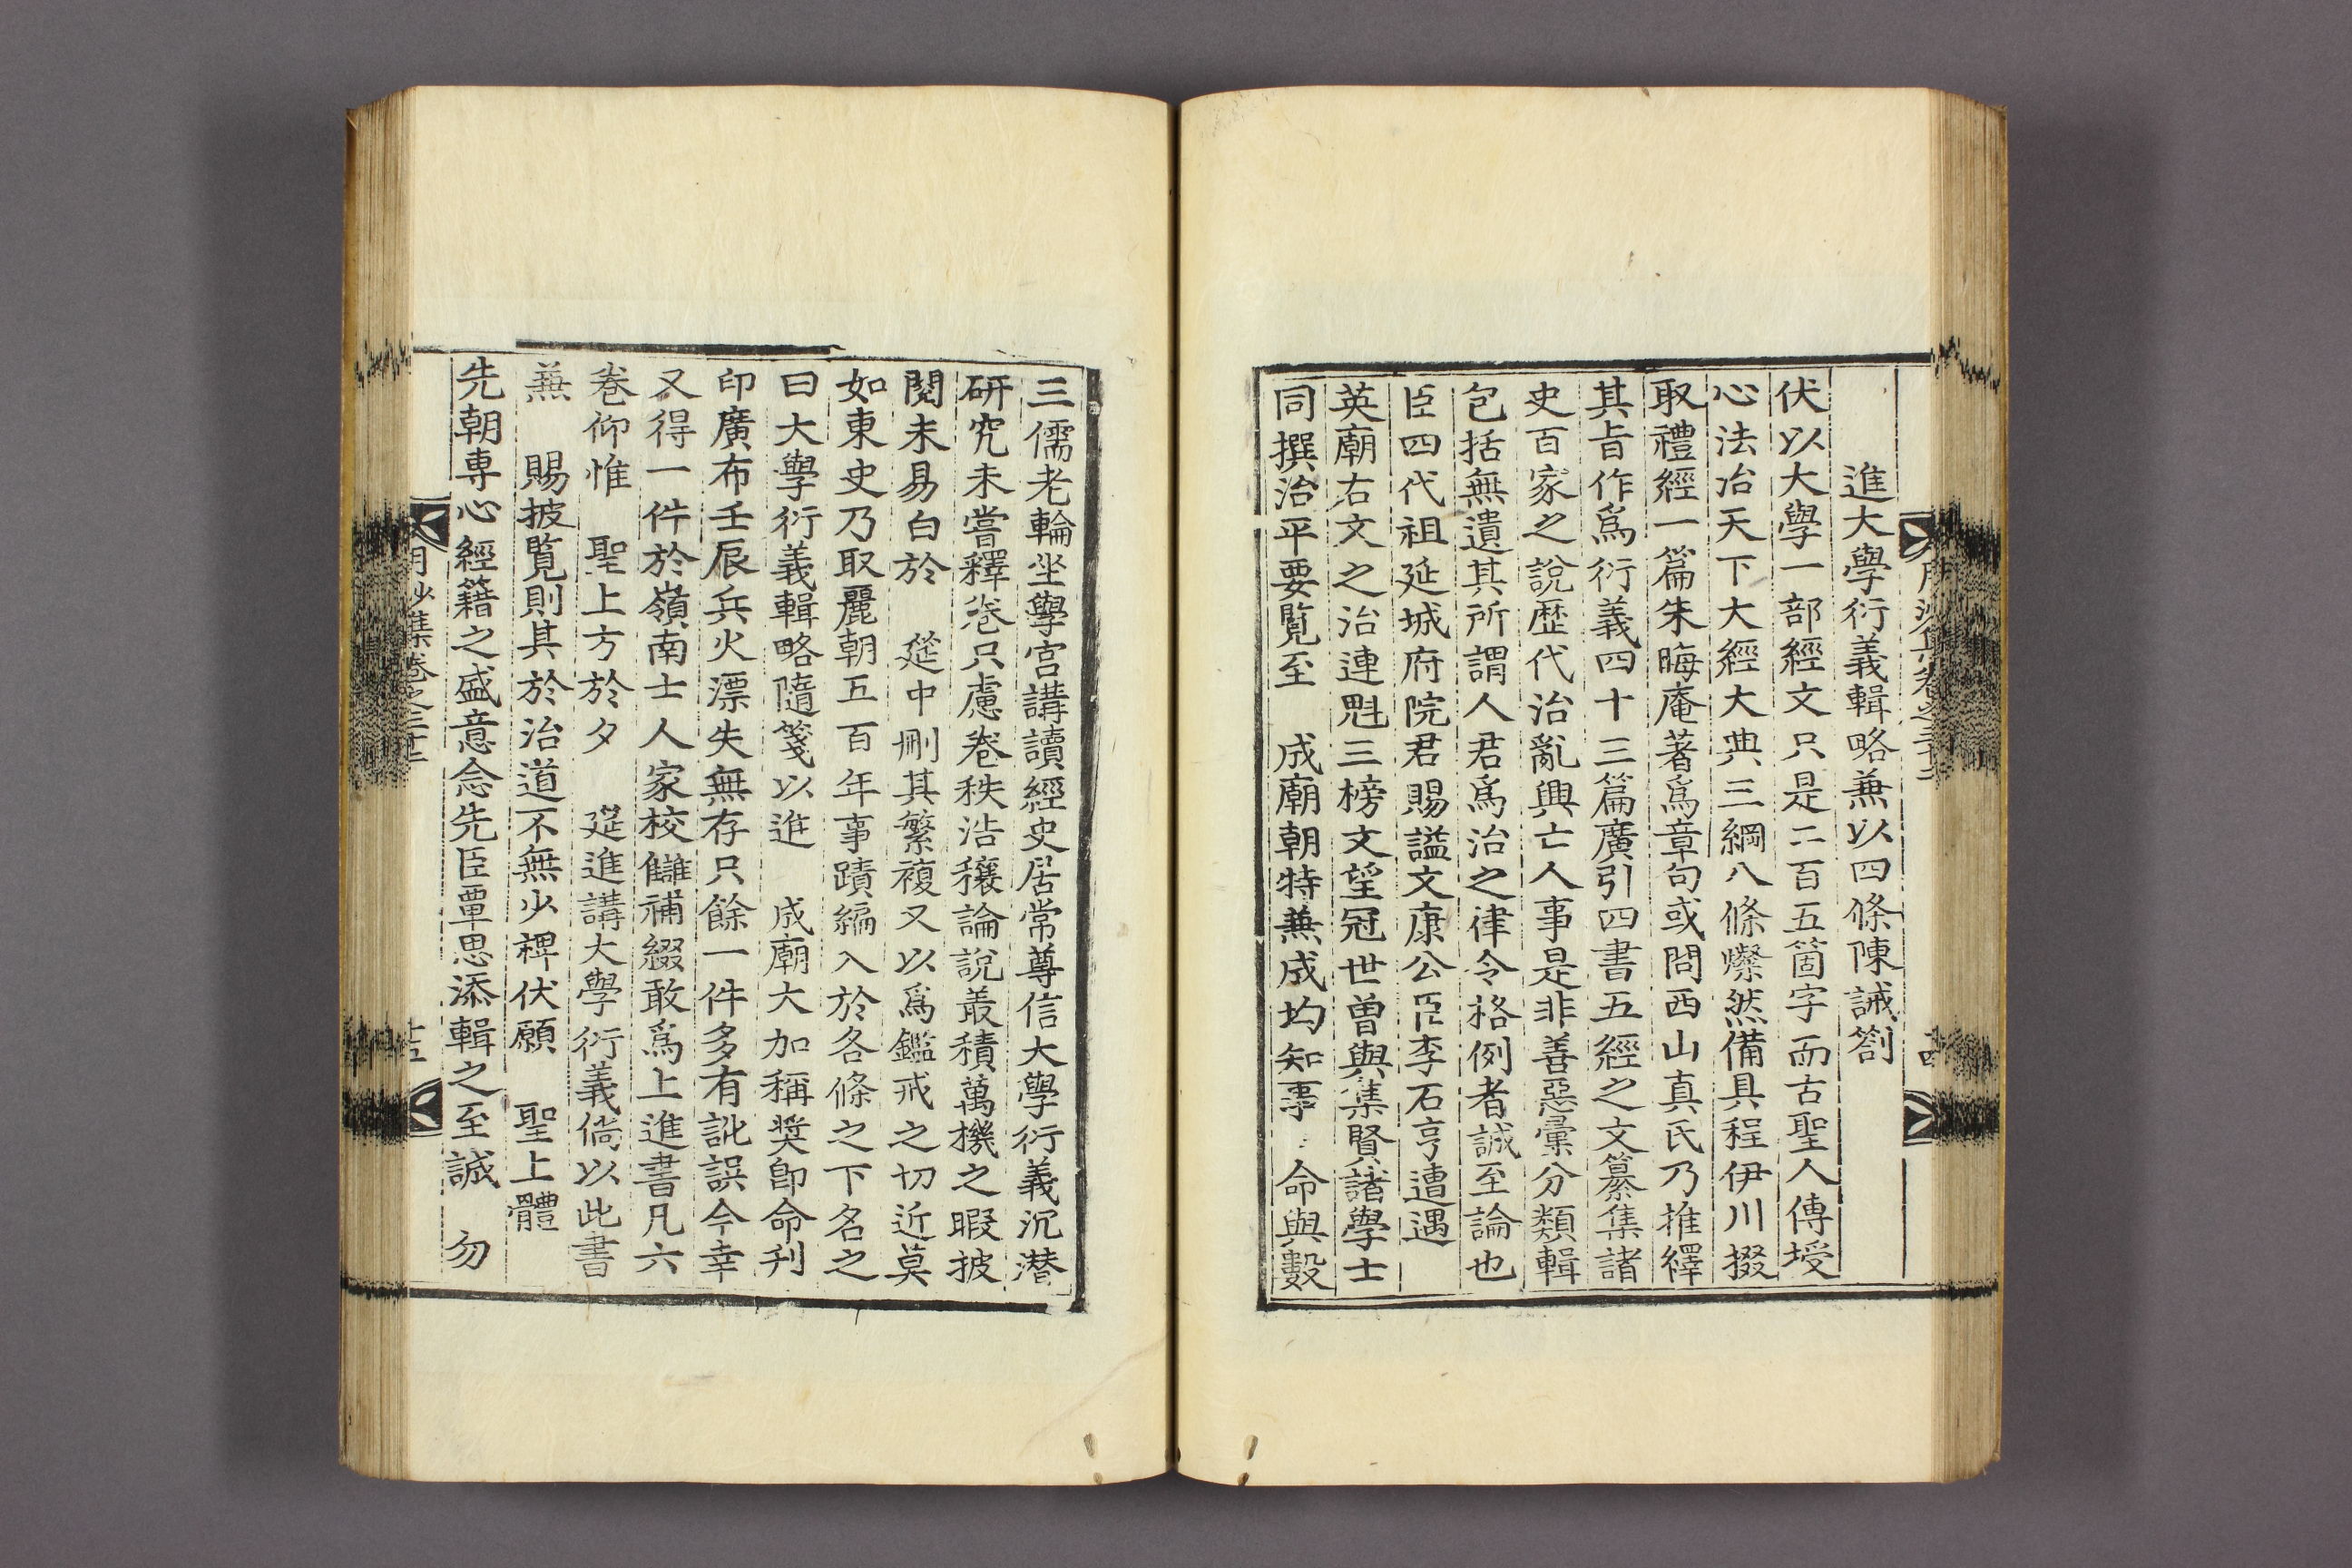 月沙集卷之三十二
十四
進大學衍義輯略兼以四條陳誡箚
伏以大學一部經文只是二百五箇字而古聖人傳授
心法治天下大經大典三綱八條燦然備具程伊川掇
取禮經一篇朱晦庵著爲章句或問西山真氏乃推繹
其旨作爲衍義四十三篇廣引四書五經之文纂集諸
史百家之說歷代治亂興亡人事是非善惡彙分類輯
包括無遺其所謂人君爲治之律令格例者誠至論也
臣四代祖延城府院君賜謚文康公臣李石亨遭遇
英廟右文之治連魁三榜文望冠世曾與集賢諸學士
同撰治平要覽至　成廟朝特兼成均知事　命與數
三儒老輪坐學宮講讀經史居常尊信大學衍義沉潜
研究未嘗釋卷只慮卷秩浩穰論說叢積萬機之暇披
閱未易白於　筵中刪其繁複又以爲鑑戒之切近莫
如東史乃取麗朝五百年事蹟編入於各條之下名之
曰大學衍義輯略隨箋以進　成廟大加稱奬卽命刋
印廣布壬辰兵火漂失無存只餘一件多有訛誤今幸
又得一件於嶺南士人家校讎補綴敢爲上進書凡六
卷仰惟　聖上方於夕　筵進講大學衍義倘以此書
兼　賜披覽則其於治道不無少裨伏願　聖上體
先朝専心經籍之盛意念先臣覃思添輯之至誠　勿
月沙集卷之三十二
十五